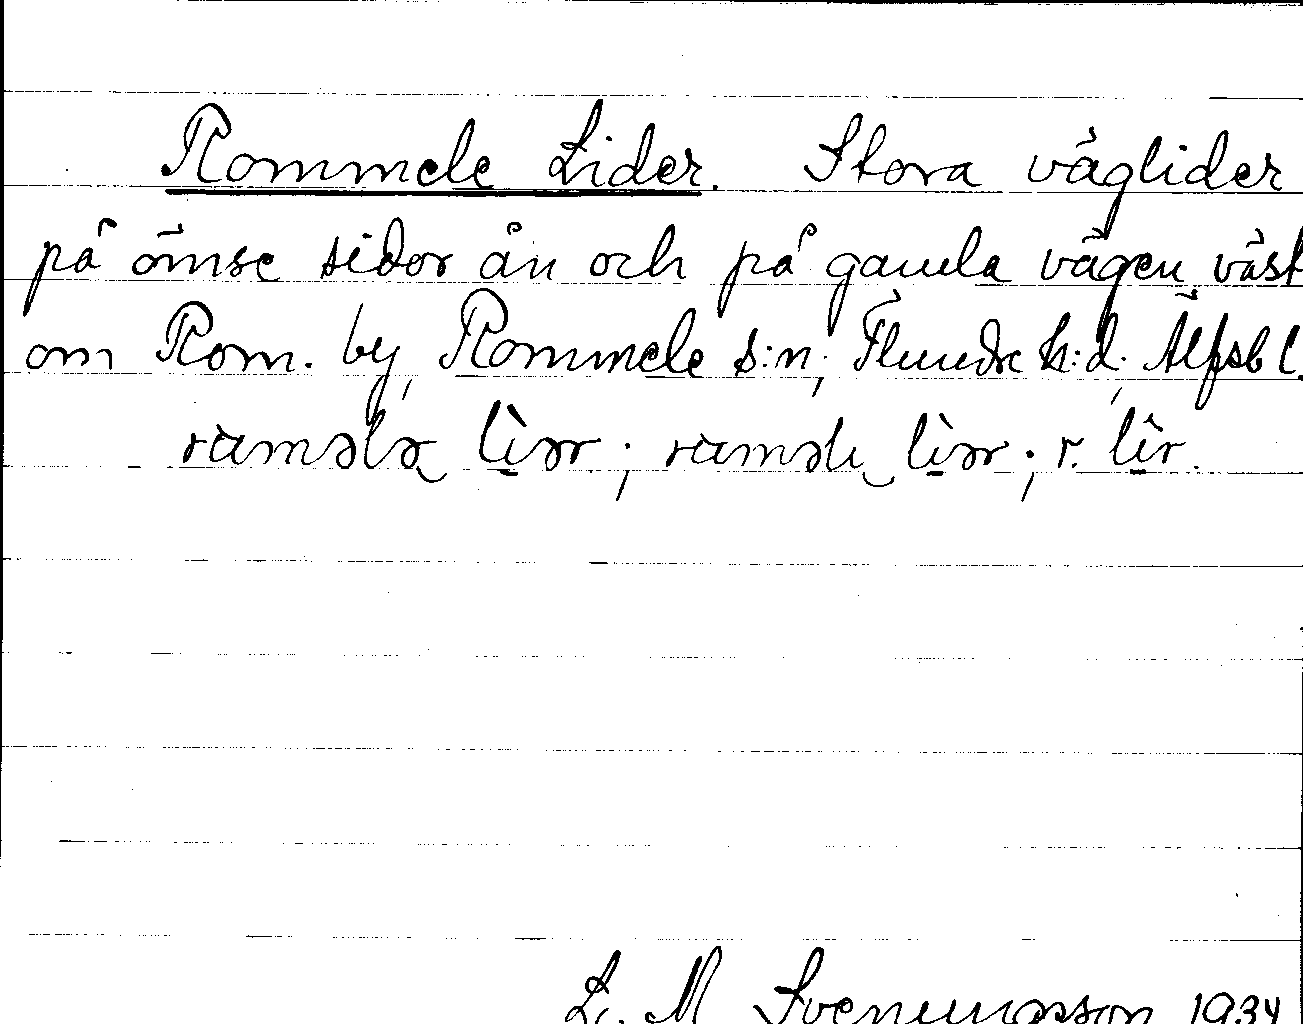 Rommele Lider. Stora väglider
på ömse sidor ån och på gamla vägen väst
om Rom. by, Rommele s:n, Flundre h:d, Älfsb l.
ramələ lìər; raməlɩ lìər; r. lîr.
L. M Svenungsson 1934